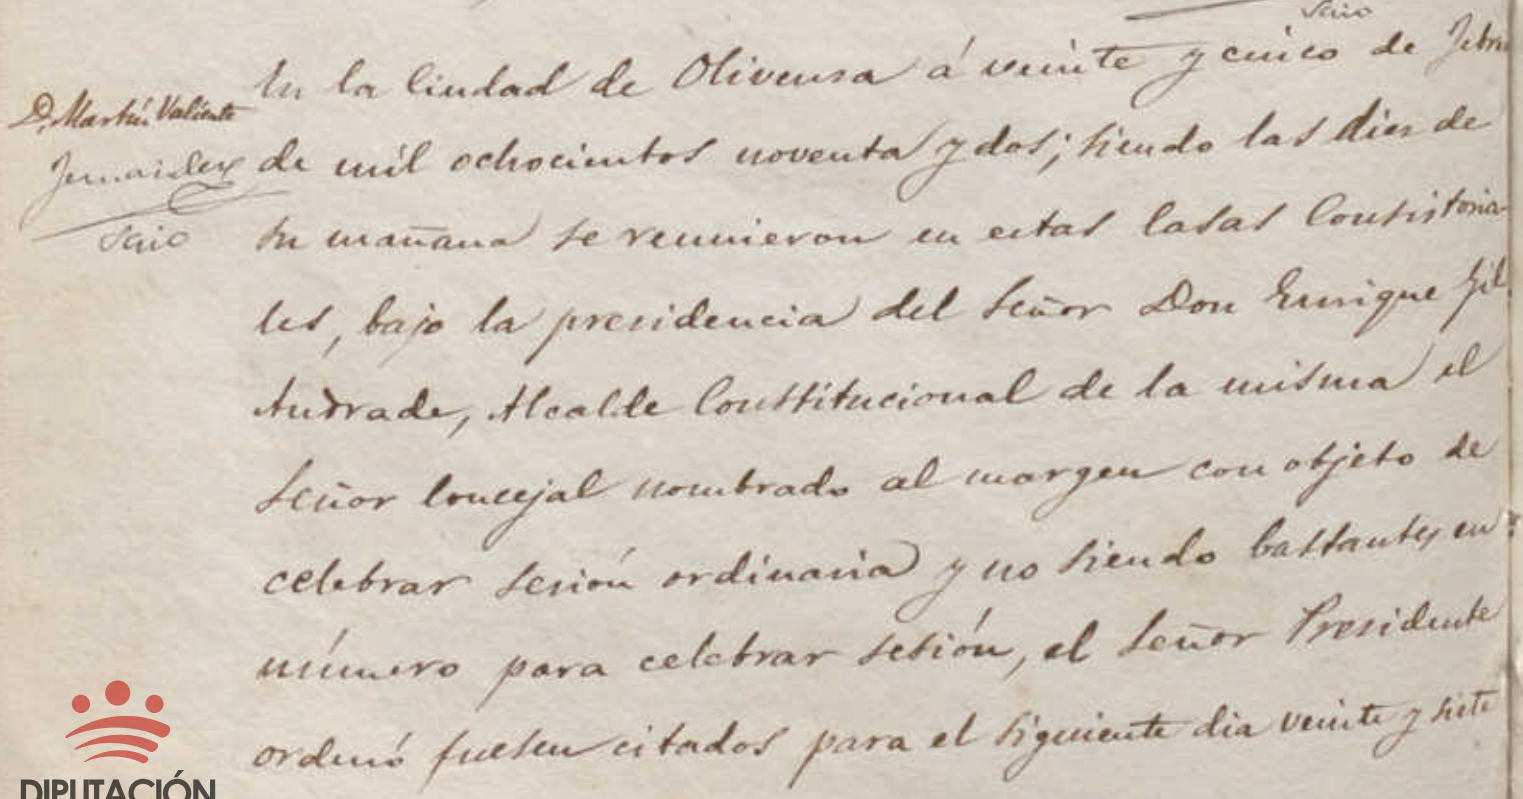 Srio
D. Martín Valiente
Fernández
Srio
En la Ciudad de Olivensa á veinte y cinco de Febr
de mil ochocientos noventa y dos; siendo las dies de
su mañana se reunieron en estas Casas Consistoria-
les, bajo la presidencia del Señor Don Enrique Gil
Andrade, Alcalde Constitucional de la misma el
Señor Concejal nombrado al margen con objeto de
celebrar sesión ordinaria y no siendo bastantes en
número para celebrar sesión, el Señor Presidente
ordenó fuesen citados para el siguiente dia veinte y siete
DIPUTACIÓN